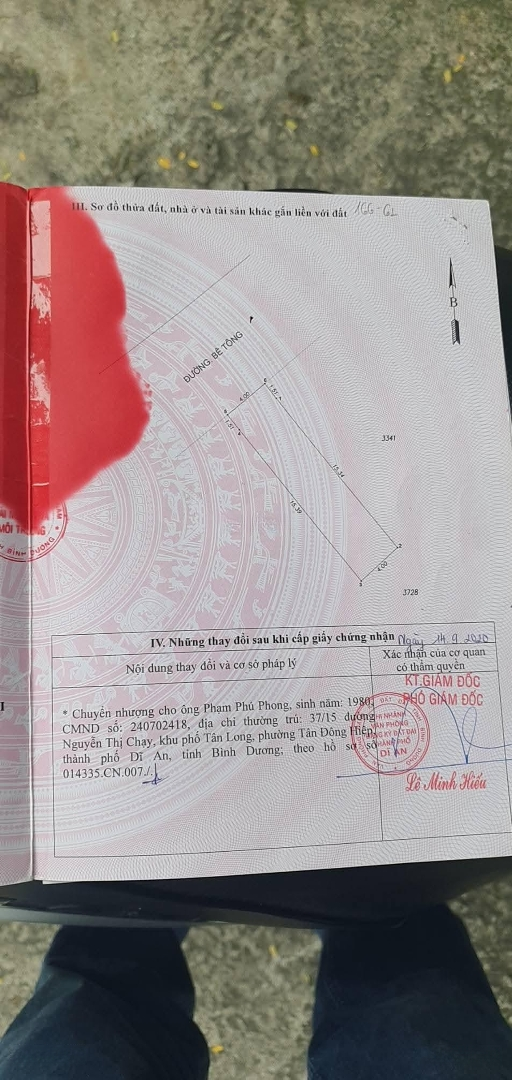 III. Sơ đồ thửa đất, nhà ở và tài sản khác gắn liền với đất 166-GL
B
ĐƯỜNG BÊ TÔNG
4.00
1.51
1.51
3341
15.34
15.39
2
4.00
3728
IV. Những thay đổi sau khi cấp giấy chứng nhận Ngày 14.9.2020
Nội dung thay đổi và cơ sở pháp lý
Xác nhận của cơ quan
có thẩm quyền
* Chuyển nhượng cho ông Phạm Phú Phong, sinh năm: 1980,
CMND số: 240702418, địa chỉ thường trú: 37/15 đường
Nguyễn Thị Chạy, khu phố Tân Long, phường Tân Đông Hiệp,
thành phố Dĩ An, tỉnh Bình Dương; theo hồ sơ số
014335.CN.007./.
KT.GIÁM ĐỐC
PHÓ GIÁM ĐỐC
CHI NHÁNH
VĂN PHÒNG
ĐĂNG KÝ ĐẤT ĐAI
THÀNH PHỐ
DĨ AN
Lê Minh Hiếu
BÌNH DƯƠNG